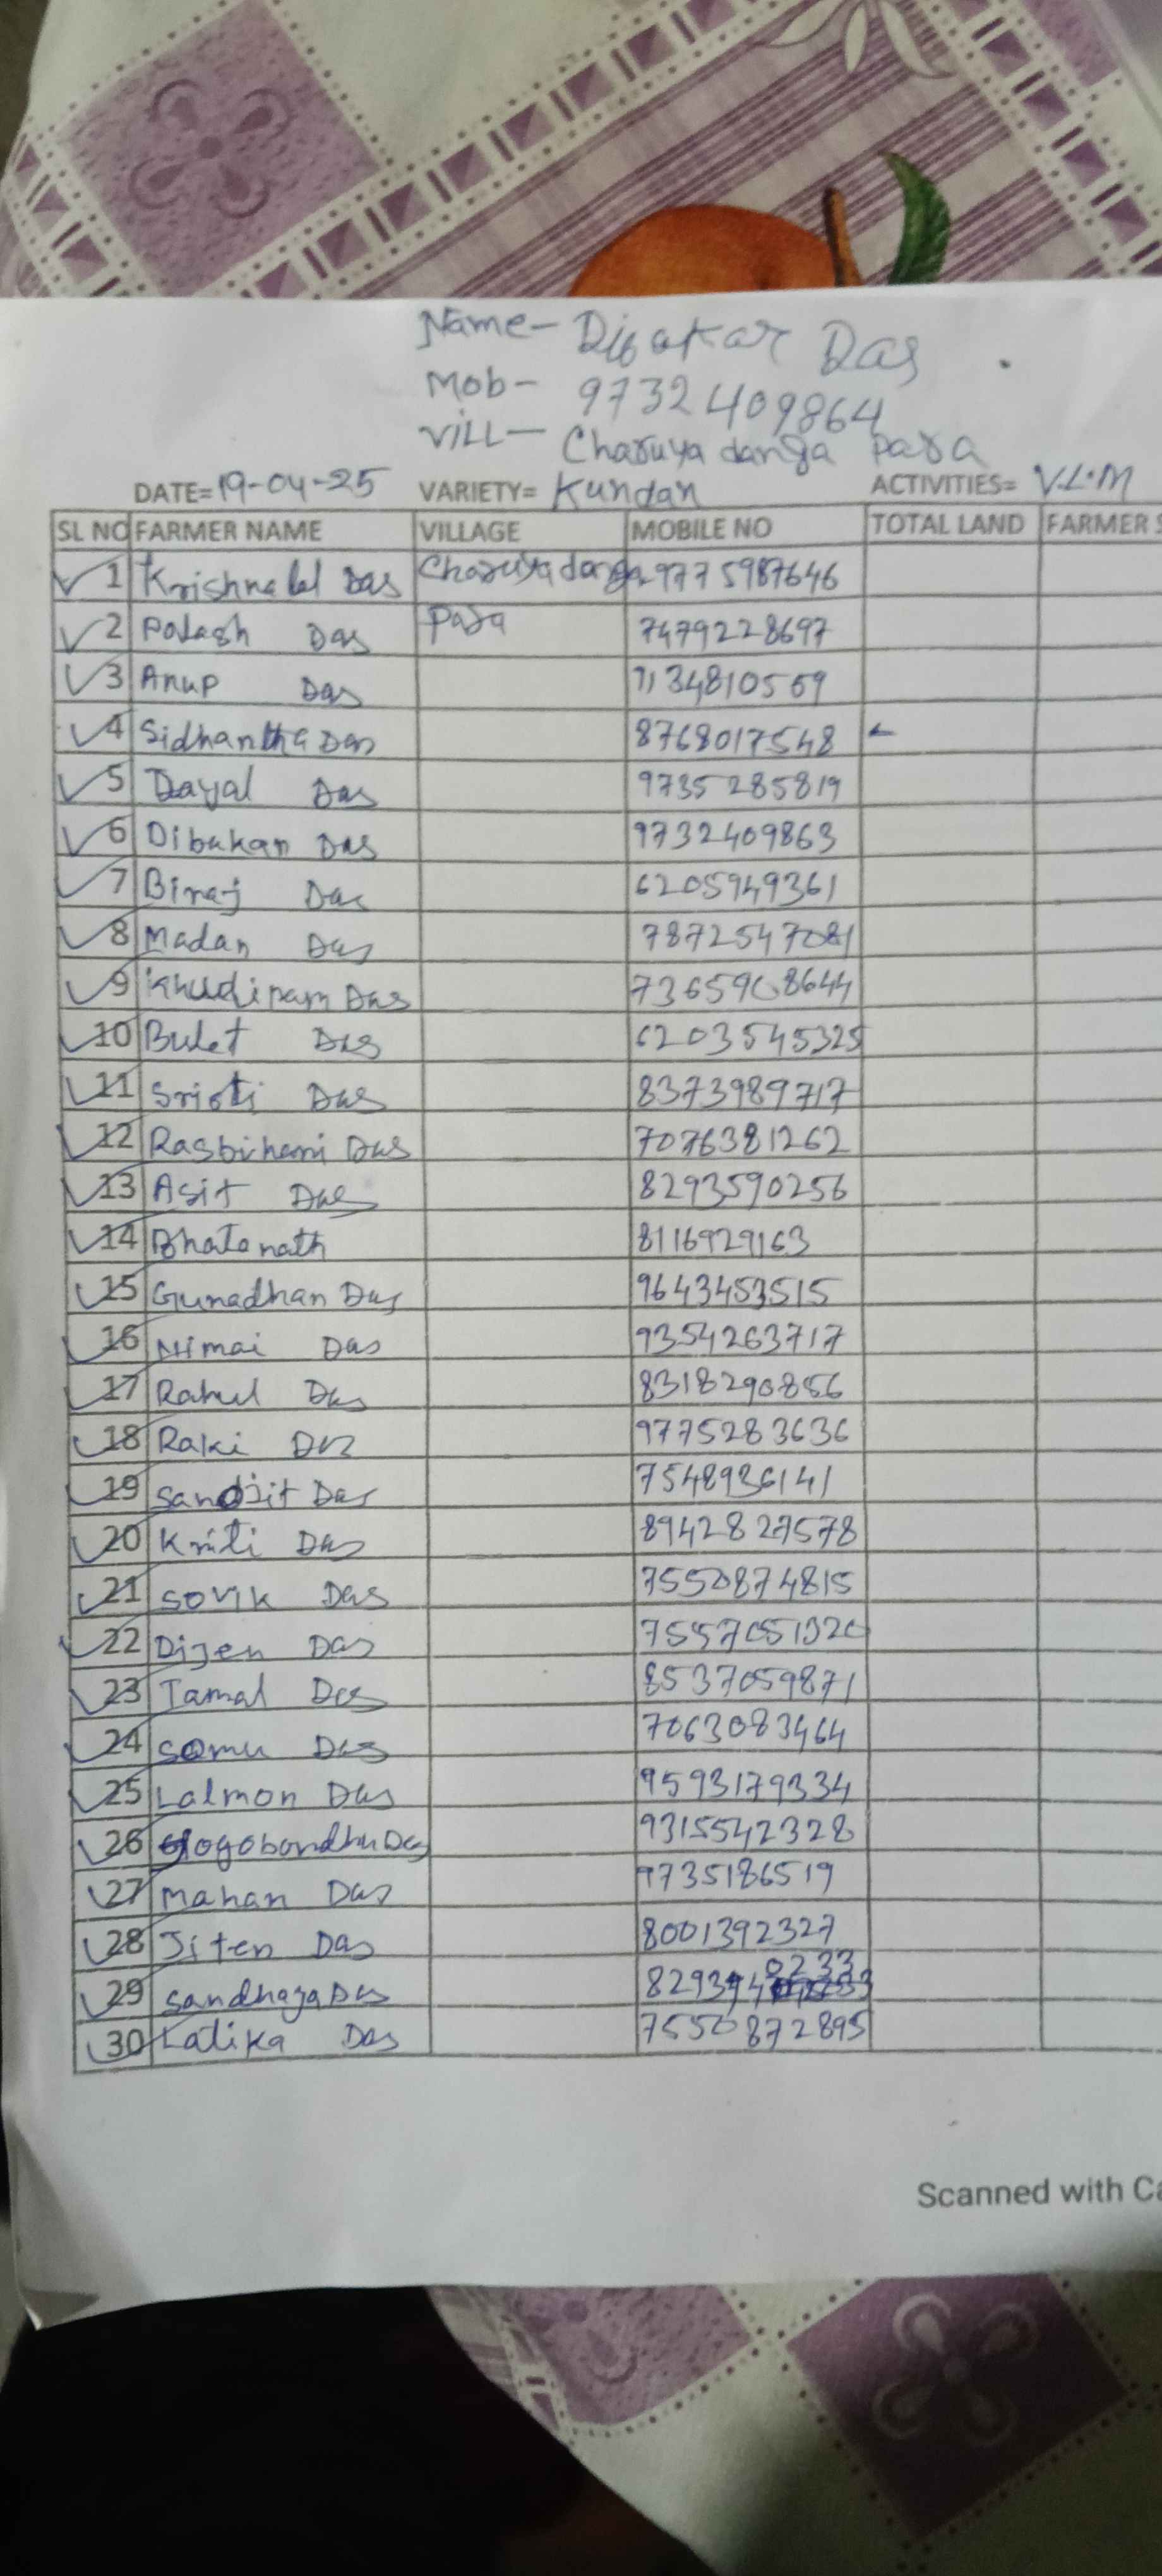 Name- Dibakar Das
Mob- 9732409864
Vill- Charuya danga para
DATE= 19-04-25 VARIETY= Kundan ACTIVITIES= V.L.M
SL NO FARMER NAME VILLAGE MOBILE NO TOTAL LAND FARMER S
1 Krishnalal Das Charuyadanga 9775987646
2 Palash Das para 7479228697
3 Anup Das
4 Sidhantha Das 8768017548
5 Dayal Das 9735285819
6 Dibakan Das 9732409863
7 Biraj Das 6205949361
8 Madan Das 7872547081
9 Khudiram Das 7365908644
10 Bulet Das 6203545325
11 Sristi Das 8373989717
12 Rasbihari Das 7076381262
13 Asit Das 8293590256
14 Bholanath 8116929163
15 Gunadhan Das 9643453515
16 Nimai Das 9354263717
17 Rahul Das 8318290856
18 Raki Das 9775283636
19 Sandjit Das 7548936141
20 Kriti Das 8942827578
21 Sovik Das 7550874815
22 Dijen Das
23 Tamal Das 8537059871
24 Somu Das 7063083464
25 Lalmon Das 9593179334
26 Das 9315542328
27 Mahan Das 9735186519
28 Jiten Das 8001392327
29 Sandhaya Das
30 Latika Das 7550872895
Scanned with Ca